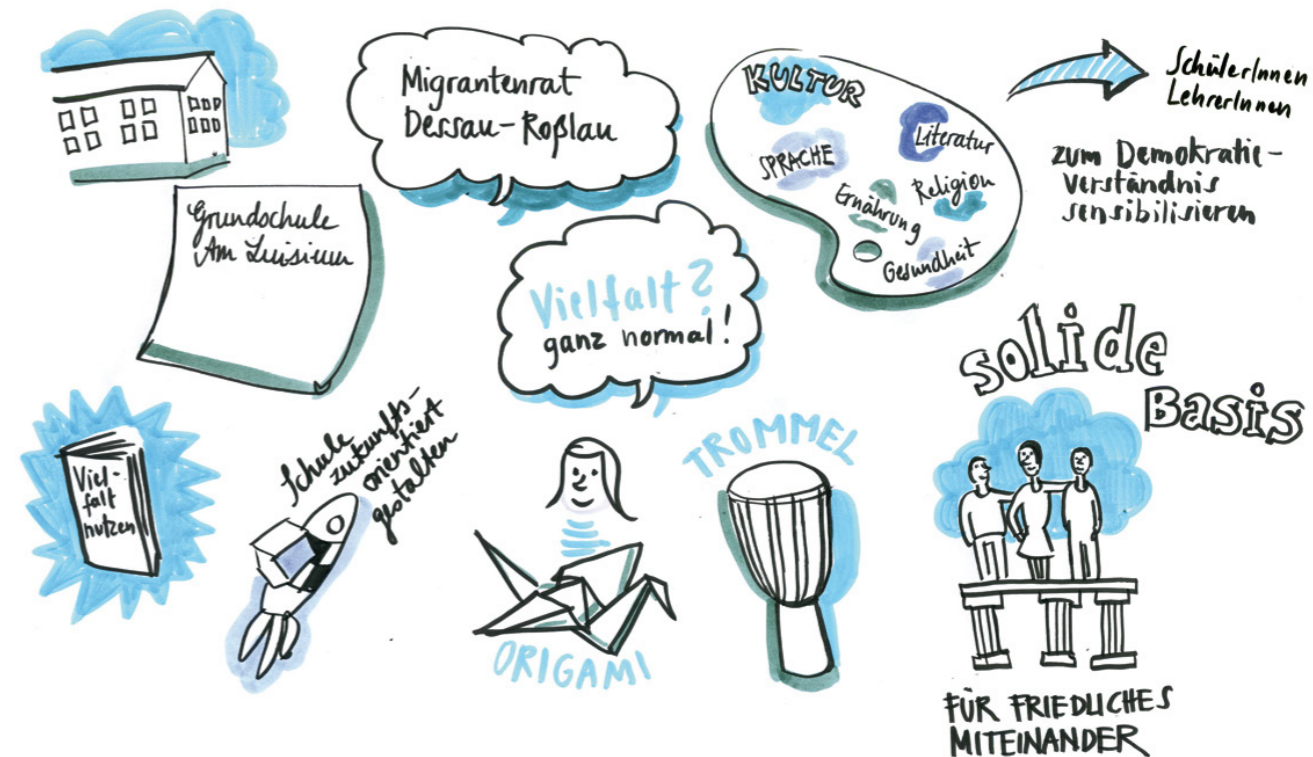 Migrantenrat
Dessau-Roßlau
KULTUR
Literatur
SPRACHE
Religion
Ernährung
Gesundheit
SchülerInnen
LehrerInnen
zum Demokratie-
verständnis
sensibilisieren
Grundschule
Am Luisium
Vielfalt?
ganz normal!
solide
Basis
Viel-
falt
nutzen
Schule
zukunfts-
orientiert
gestalten
ORIGAMI
TROMMEL
FÜR FRIEDLICHES
MITEINANDER